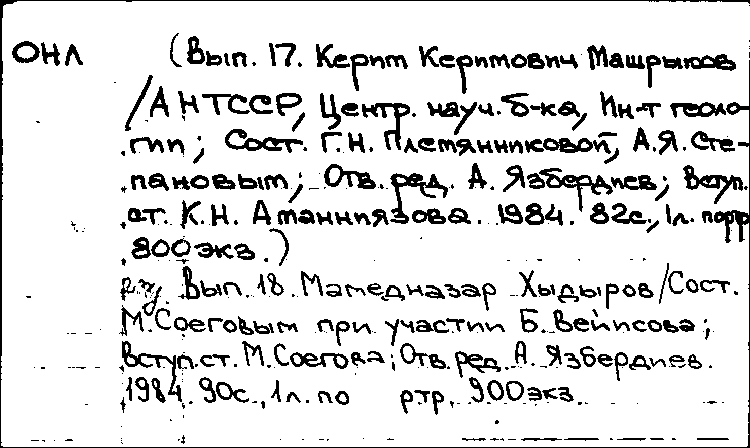 ОНЛ (Вып. 17. Керим Керимович Машрыков
/АНТССР, Центр. науч. б-ка, Ин-т геоло-
гии; Сост. Г.Н. Племянниковой, А.Я. Сте-
пановым; Отв. ред. А. Язбердиев; Вступ.
ст. К.Н. Аманниязова. 1984. 82с., 1л. портр
800экз.)
Вып. 18. Мамедназар Хыдыров/Сост.
М.Соеговым при участии Б. Вейисова;
Вступ.ст. М.Соегова; Отв. ред. А. Язбердиев.
1984. 90с., 1л. по ртр. 900экз.